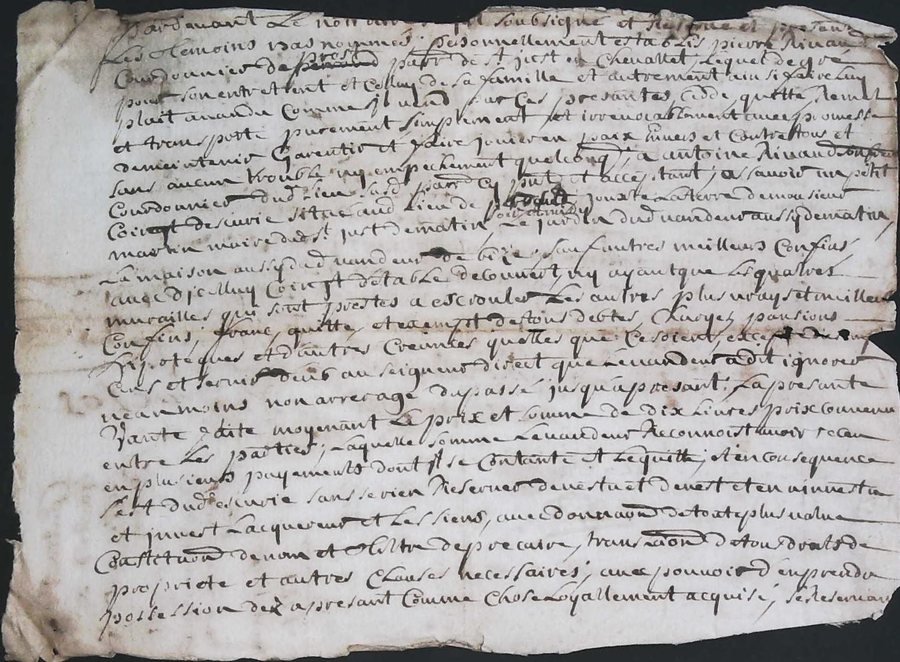 Pardevant Le nottaire soubsigné et
Les temoins bas nommés, personnellement establis pierre Rivaud
Cordonnier de parr. de St just en Chevallet, Lequel de gre
pour son entretient et Celluy de sa famille et autrement ainsi faire Luy
plait a vandu Comme Il vand par Ces presantes, cede quitte, Remet
et transporte purement simplement et irrevocablement avec promesse
de meintenir Garentir et faire jouir en paix Envers et Contre tous et
sans aucun trouble ny empechement quelconq; a antoine Rivaud son frere
Cordonnier dud. Lieu susd. parr. Cy pnt. et acceptant; a sçavoir un petit
situé aud. Lieu de jouxte La terre de monsieur
martin maire dud. St. just de matin, Le jardin dud. vandeur aussy de matin,
La maison aussy dud. vandeur de bize, sauf autres meilleurs Confins
d'estable decouvert, ny ayant que Les quatres
murailles qui sont prestes a escrouler, Les autres plus vrays et meilleurs
Confins, franc, quitte, et exempt de tous debtes, Charges, pansions
Hipoteques et d'autres Creances quelles que Ce soient, excepté de
Cens et servis deub au seigneur direct que Le vandeur a dit ignorer
neanmoins non arrerage du passé jusqu'a presant; La presante
Vante faite moyenant Le prix et somme de dix Livres prix convenu
entre Les parties, Laquelle somme Le vandeur Reconnoist avoir receu
en plusieurs payements dont Il se Contante et Le quitte; et en consequence
sans se rien Reserver devestu et en a investu
et invest L'acquereur et Les siens, avec donnaon. de toute plus value
Constitution. de nom et tiltre de precaire, translaon. de tous droits de
propriete et autres Clauses necessaires; avec pouvoir d'en prendre
possession dez apresant Comme Chose Loyallement acquise; se Reservant